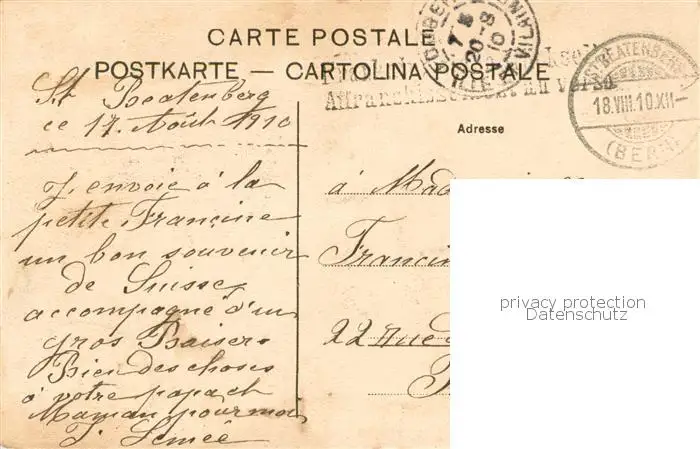 CARTE POSTALE
POSTKARTE — CARTOLINA POSTALE
Affranchissement au verso
20-8
10
ST. BEATENBERG
18.VIII.10.XII-
(BERN)
Adresse
St Beatenberg
ce 17. Août 1910
J'envoie à la
petite Francine
un bon souvenir
de Suisse,
accompagné d'un
gros Baiser.
Bien des choses
à votre papa et
Maman pour moi
à Mad
Francin
22 Rue
privacy protection
Datenschutz